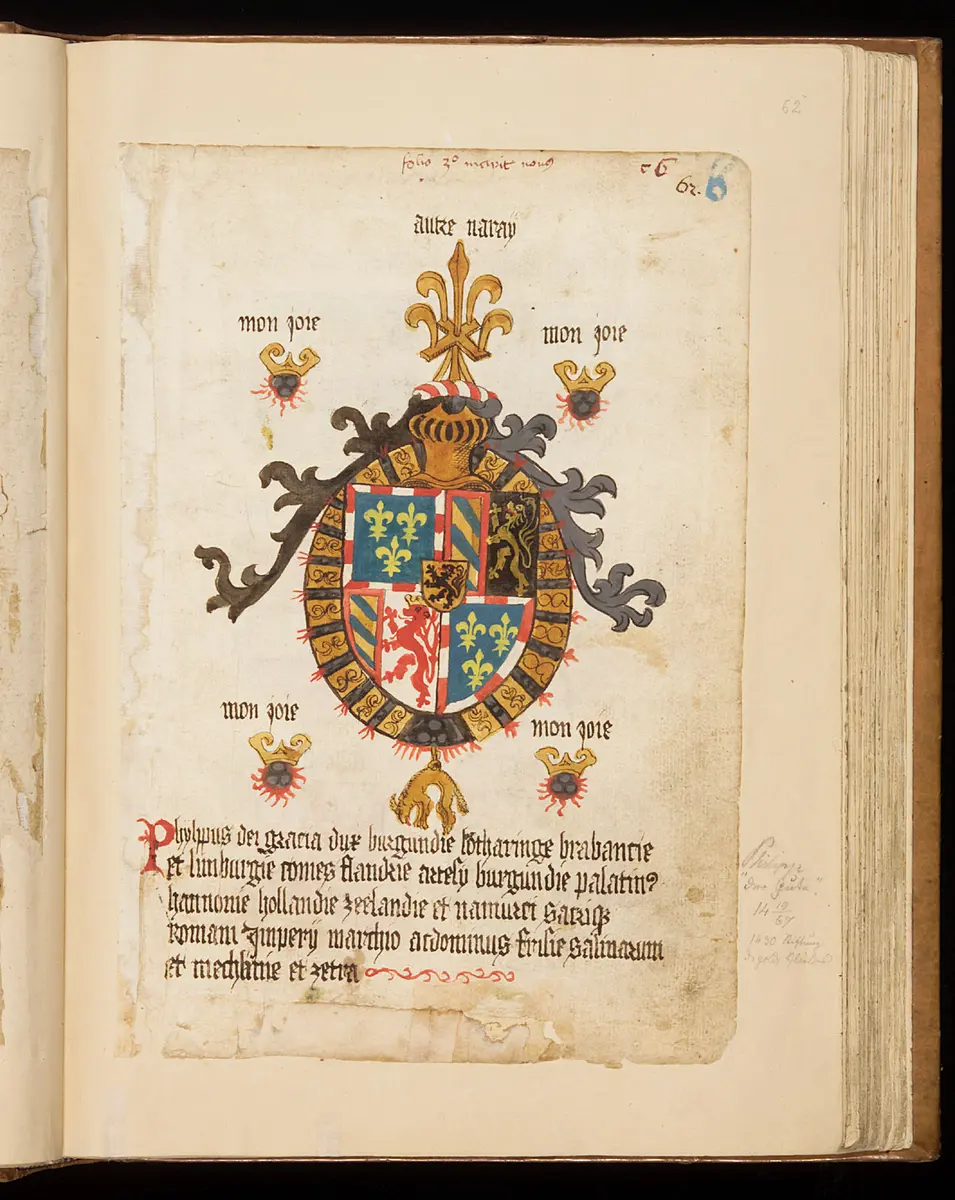 62
folio 3º incipit nonus
c 6
62.
autre naray
mon joie
mon joie
mon joie
mon joie
Phylippus dei gracia dux burgundie lotharinge brabancie
et limburgie comes flandrie artesij burgundie palatin9
hannonie hollandie zeelandie et namurci sacriq3
Romani Jmperij marchio ac dominus Frisie salinarum
et mechlinie et zetra
Philipp
"der Gute".
14 19/67
1430 Stiftung